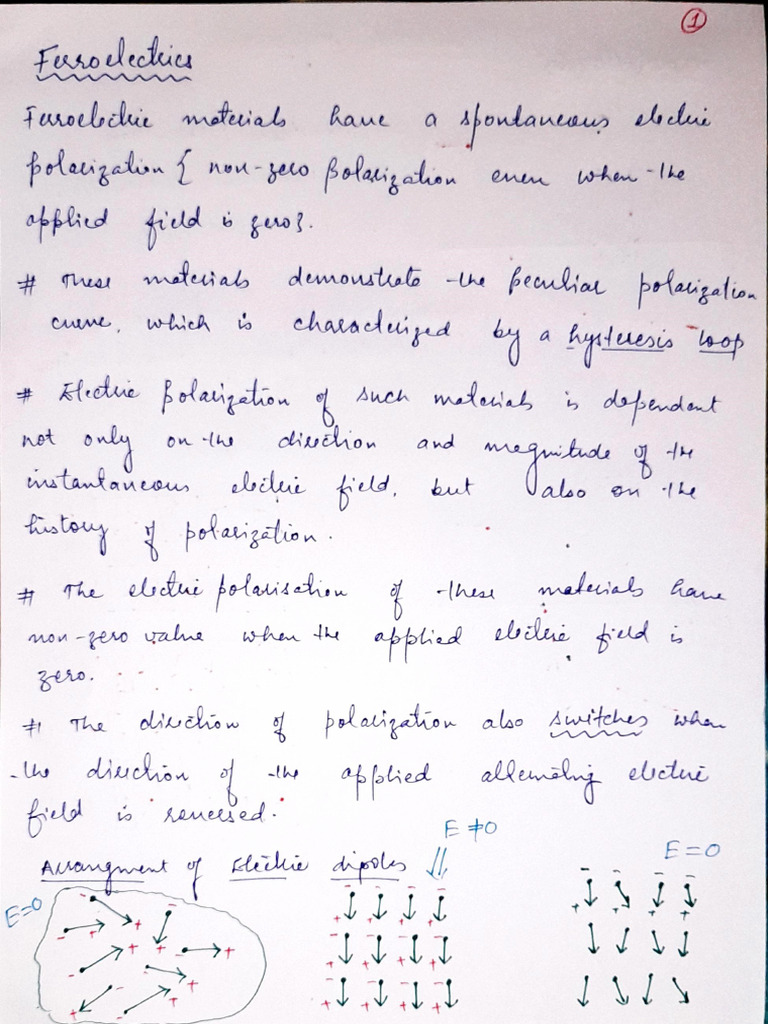 1
Ferroelectrics
Ferroelectric materials have a spontaneous electric
polarization { non-zero polarization even when the
applied field is zero}.
# These materials demonstrate the peculiar polarization
curve, which is characterized by a hysteresis loop
# Electric polarization of such materials is dependent
not only on the direction and magnitude of the
instantaneous electric field, but also on the
history of polarization.
# The electric polarisation of these materials have
non-zero value when the applied electric field is
zero.
# The direction of polarization also switches when
the direction of the applied alternating electric
field is reversed.
Arrangment of Electric dipoles
E=0
E≠0
E=0